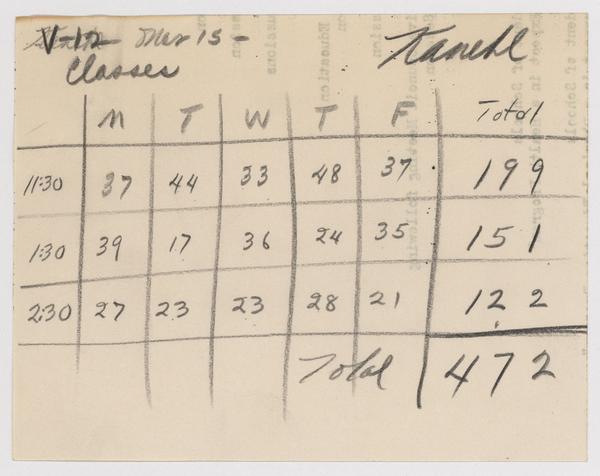 V-12 Mar 15 -
Kanehl
Classes
M T W T F Total
11:30 37 44 33 48 37 199
1:30 39 17 36 24 35 151
2:30 27 23 23 28 21 122
Total 472